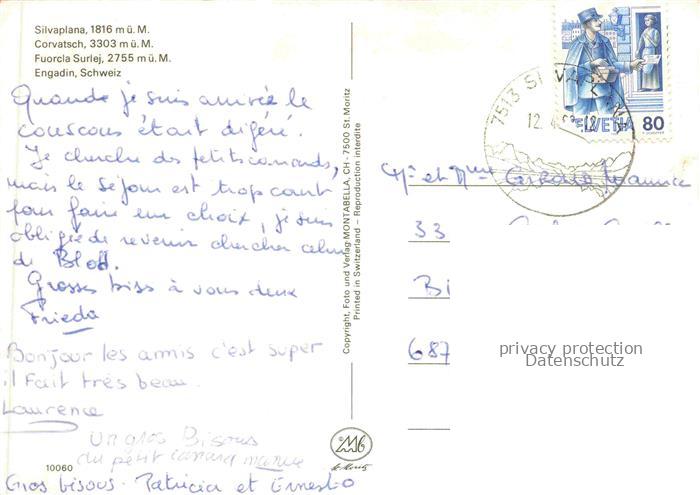 Silvaplana, 1816 m ü. M.
Corvatsch, 3303 m ü. M.
Fuorcla Surlej, 2755 m ü. M.
Engadin, Schweiz
Quand je suis arrivée le
couscous était digéré.
Je cherche des petits canards,
mais le séjour est trop court
pour faire un choix, je suis
obligée de revenir chercher celui
de
Grosses biss à vous deux
Frieda
Bonjour les amis c'est super
il fait très beau.
Laurence
Un gros Bisous
du petit canard
Gros bisous. Patricia et Ernesto
10060
Copyright, Foto und Verlag MONTABELLA, CH - 7500 St. Moritz
Printed in Switzerland – Reproduction interdite
MB
St. Moritz
7513 SILVAPLANA
12. 4.
HELVETIA 80
Mr et Mme Maurice
33
Bi
687
privacy protection
Datenschutz